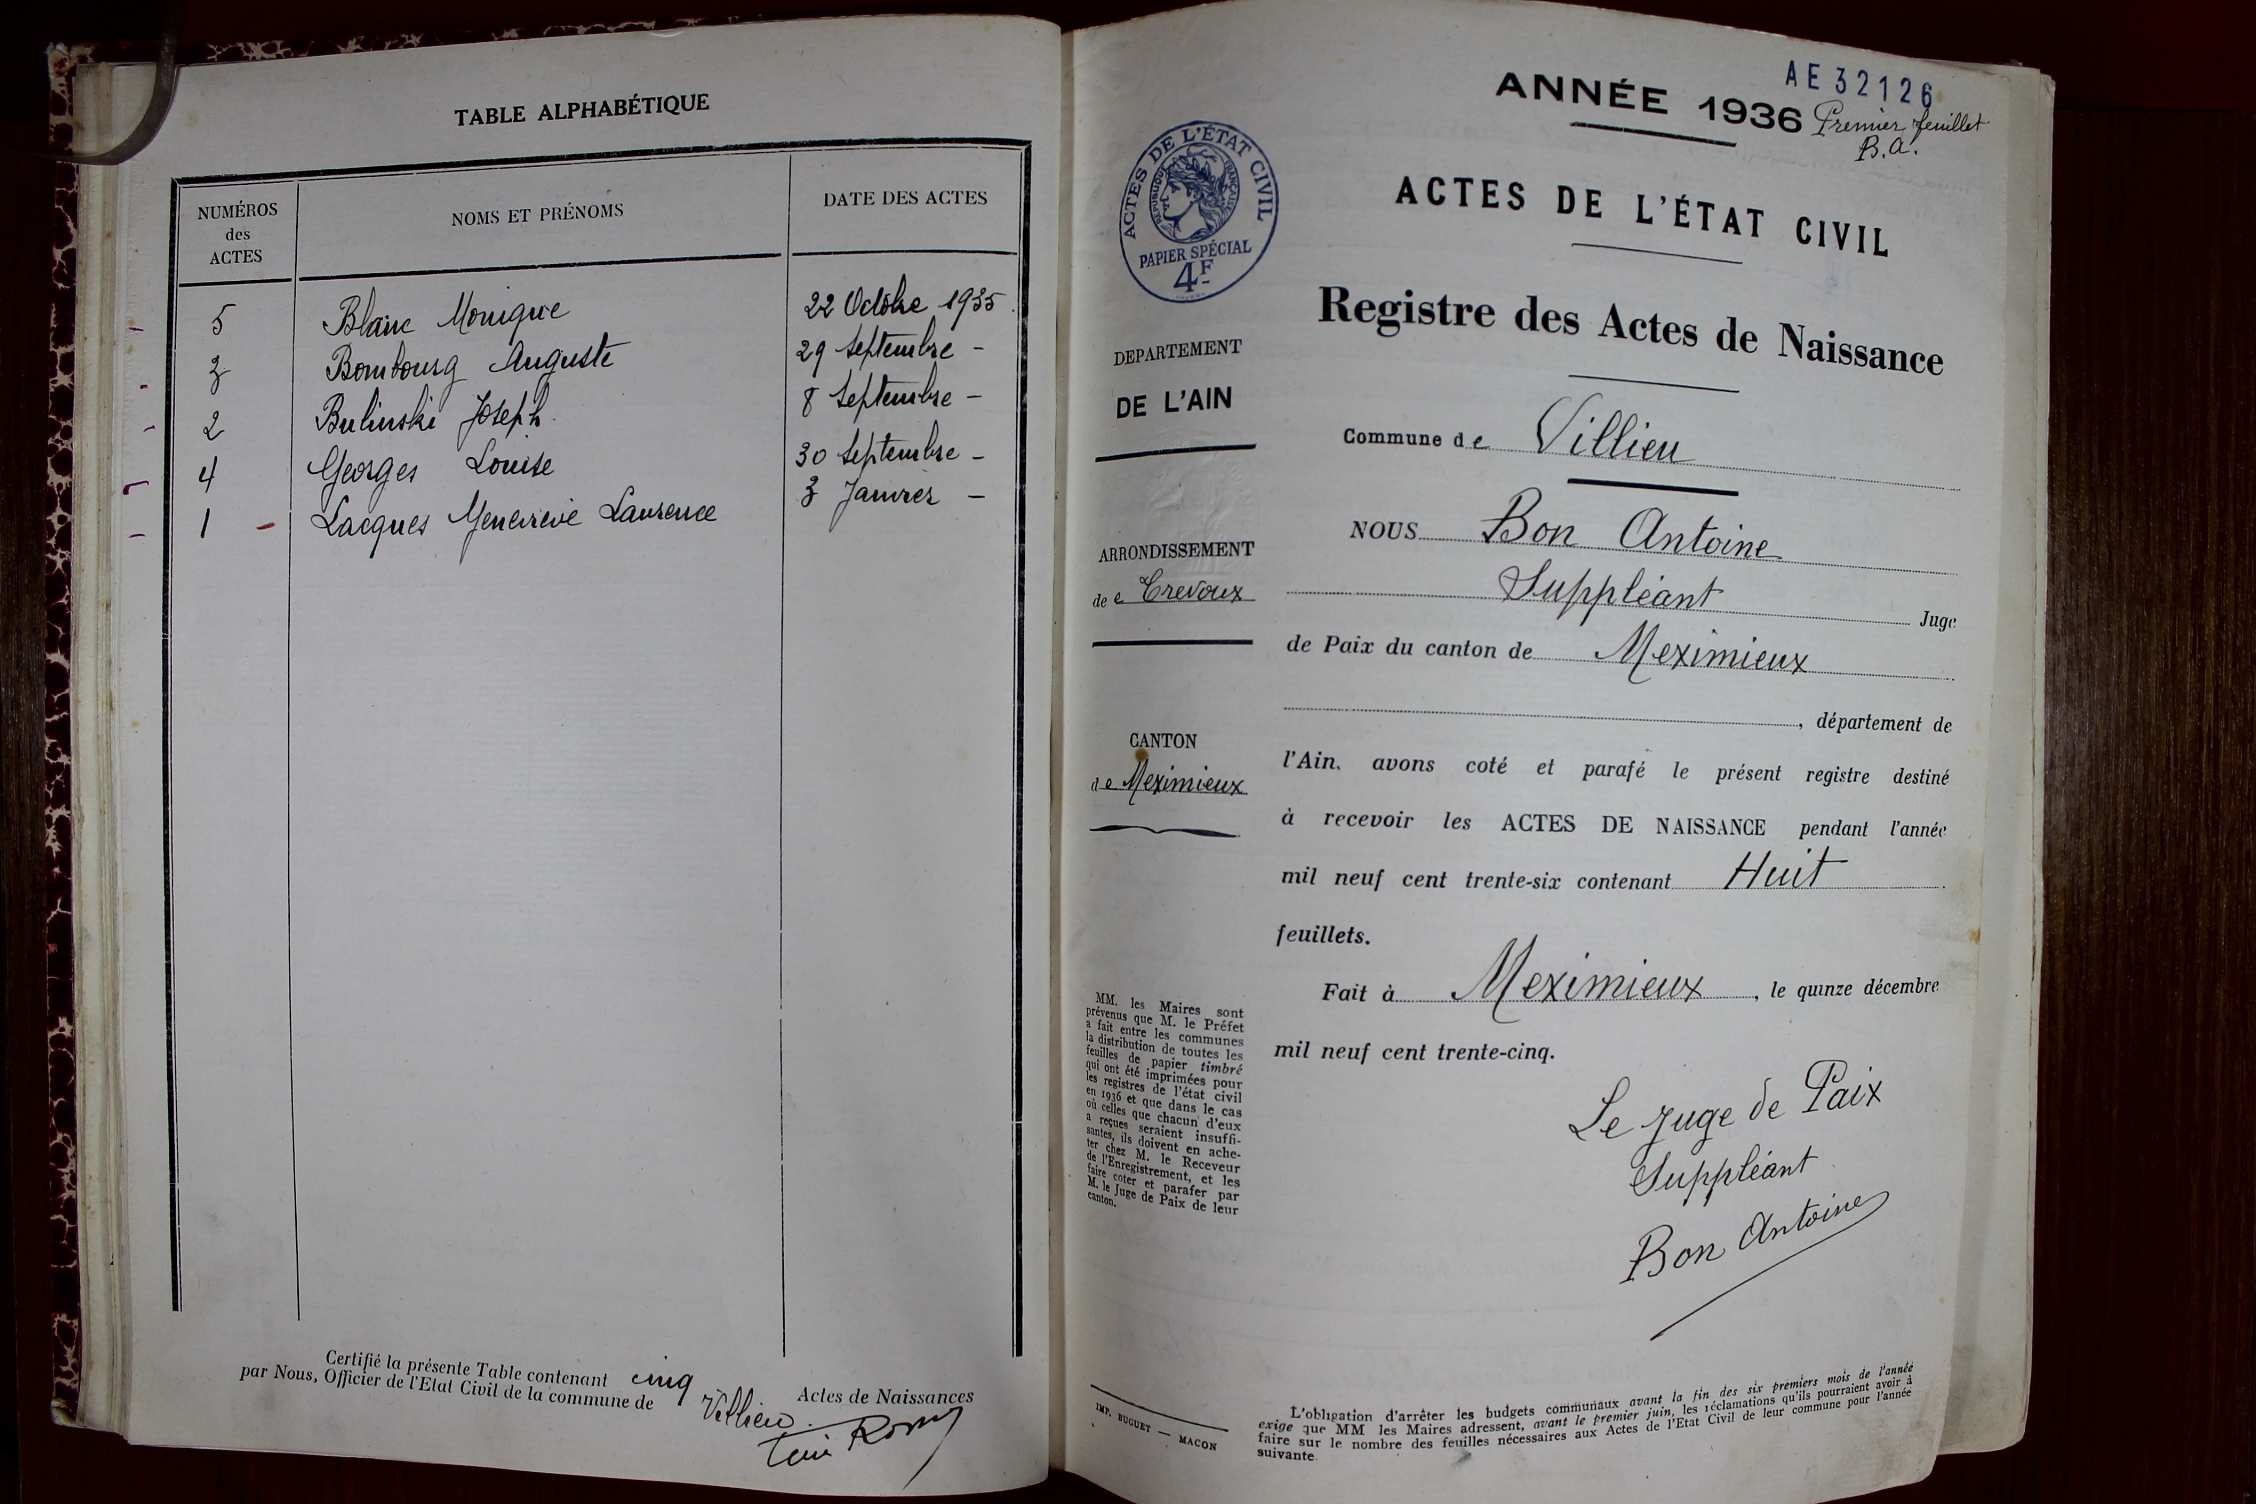 TABLE ALPHABÉTIQUE
NUMÉROS
des
ACTES
NOMS ET PRÉNOMS
DATE DES ACTES
5 Blanc Monique 22 Octobre 1935
3 Bombourg Auguste 29 Septembre -
2 Bulinski Joseph 8 Septembre -
4 Georges Louise 30 Septembre -
1 - Lacques Geneviève Laurence 3 Janvier -
Certifié la présente Table contenant cinq Actes de Naissances
par Nous, Officier de l'Etat Civil de la commune de Villieu
AE32126
ANNÉE 1936
Premier feuillet
B.A.
ACTES DE L'ÉTAT CIVIL
RÉPUBLIQUE FRANÇAISE
PAPIER SPÉCIAL
4F
ACTES DE L'ÉTAT CIVIL
Registre des Actes de Naissance
DEPARTEMENT
DE L'AIN
Commune de Villieu
NOUS Bon Antoine
ARRONDISSEMENT
de e Trevoux
Suppléant Juge
de Paix du canton de Meximieux
, département de
CANTON
de Meximieux
l'Ain, avons coté et parafé le présent registre destiné
à recevoir les ACTES DE NAISSANCE pendant l'année
mil neuf cent trente-six contenant Huit
feuillets.
Fait à Meximieux, le quinze décembre
mil neuf cent trente-cinq.
Le juge de Paix
Suppléant
Bon Antoine
MM. les Maires sont
prévenus que M. le Préfet
a fait entre les communes
la distribution de toutes les
feuilles de papier timbré
qui ont été imprimées pour
les registres de l'état civil
en 1936 et que dans le cas
où celles que chacun d'eux
a reçues seraient insuffi-
santes, ils doivent en ache-
ter chez M. le Receveur
de l'Enregistrement, et les
faire coter et parafer par
M. le Juge de Paix de leur
canton.
IMP. BUGUET — MACON
L'obligation d'arrêter les budgets communaux avant la fin des six premiers mois de l'année
exige que MM les Maires adressent, avant le premier juin, les réclamations qu'ils pourraient avoir à
faire sur le nombre des feuilles nécessaires aux Actes de l'Etat Civil de leur commune pour l'année
suivante.